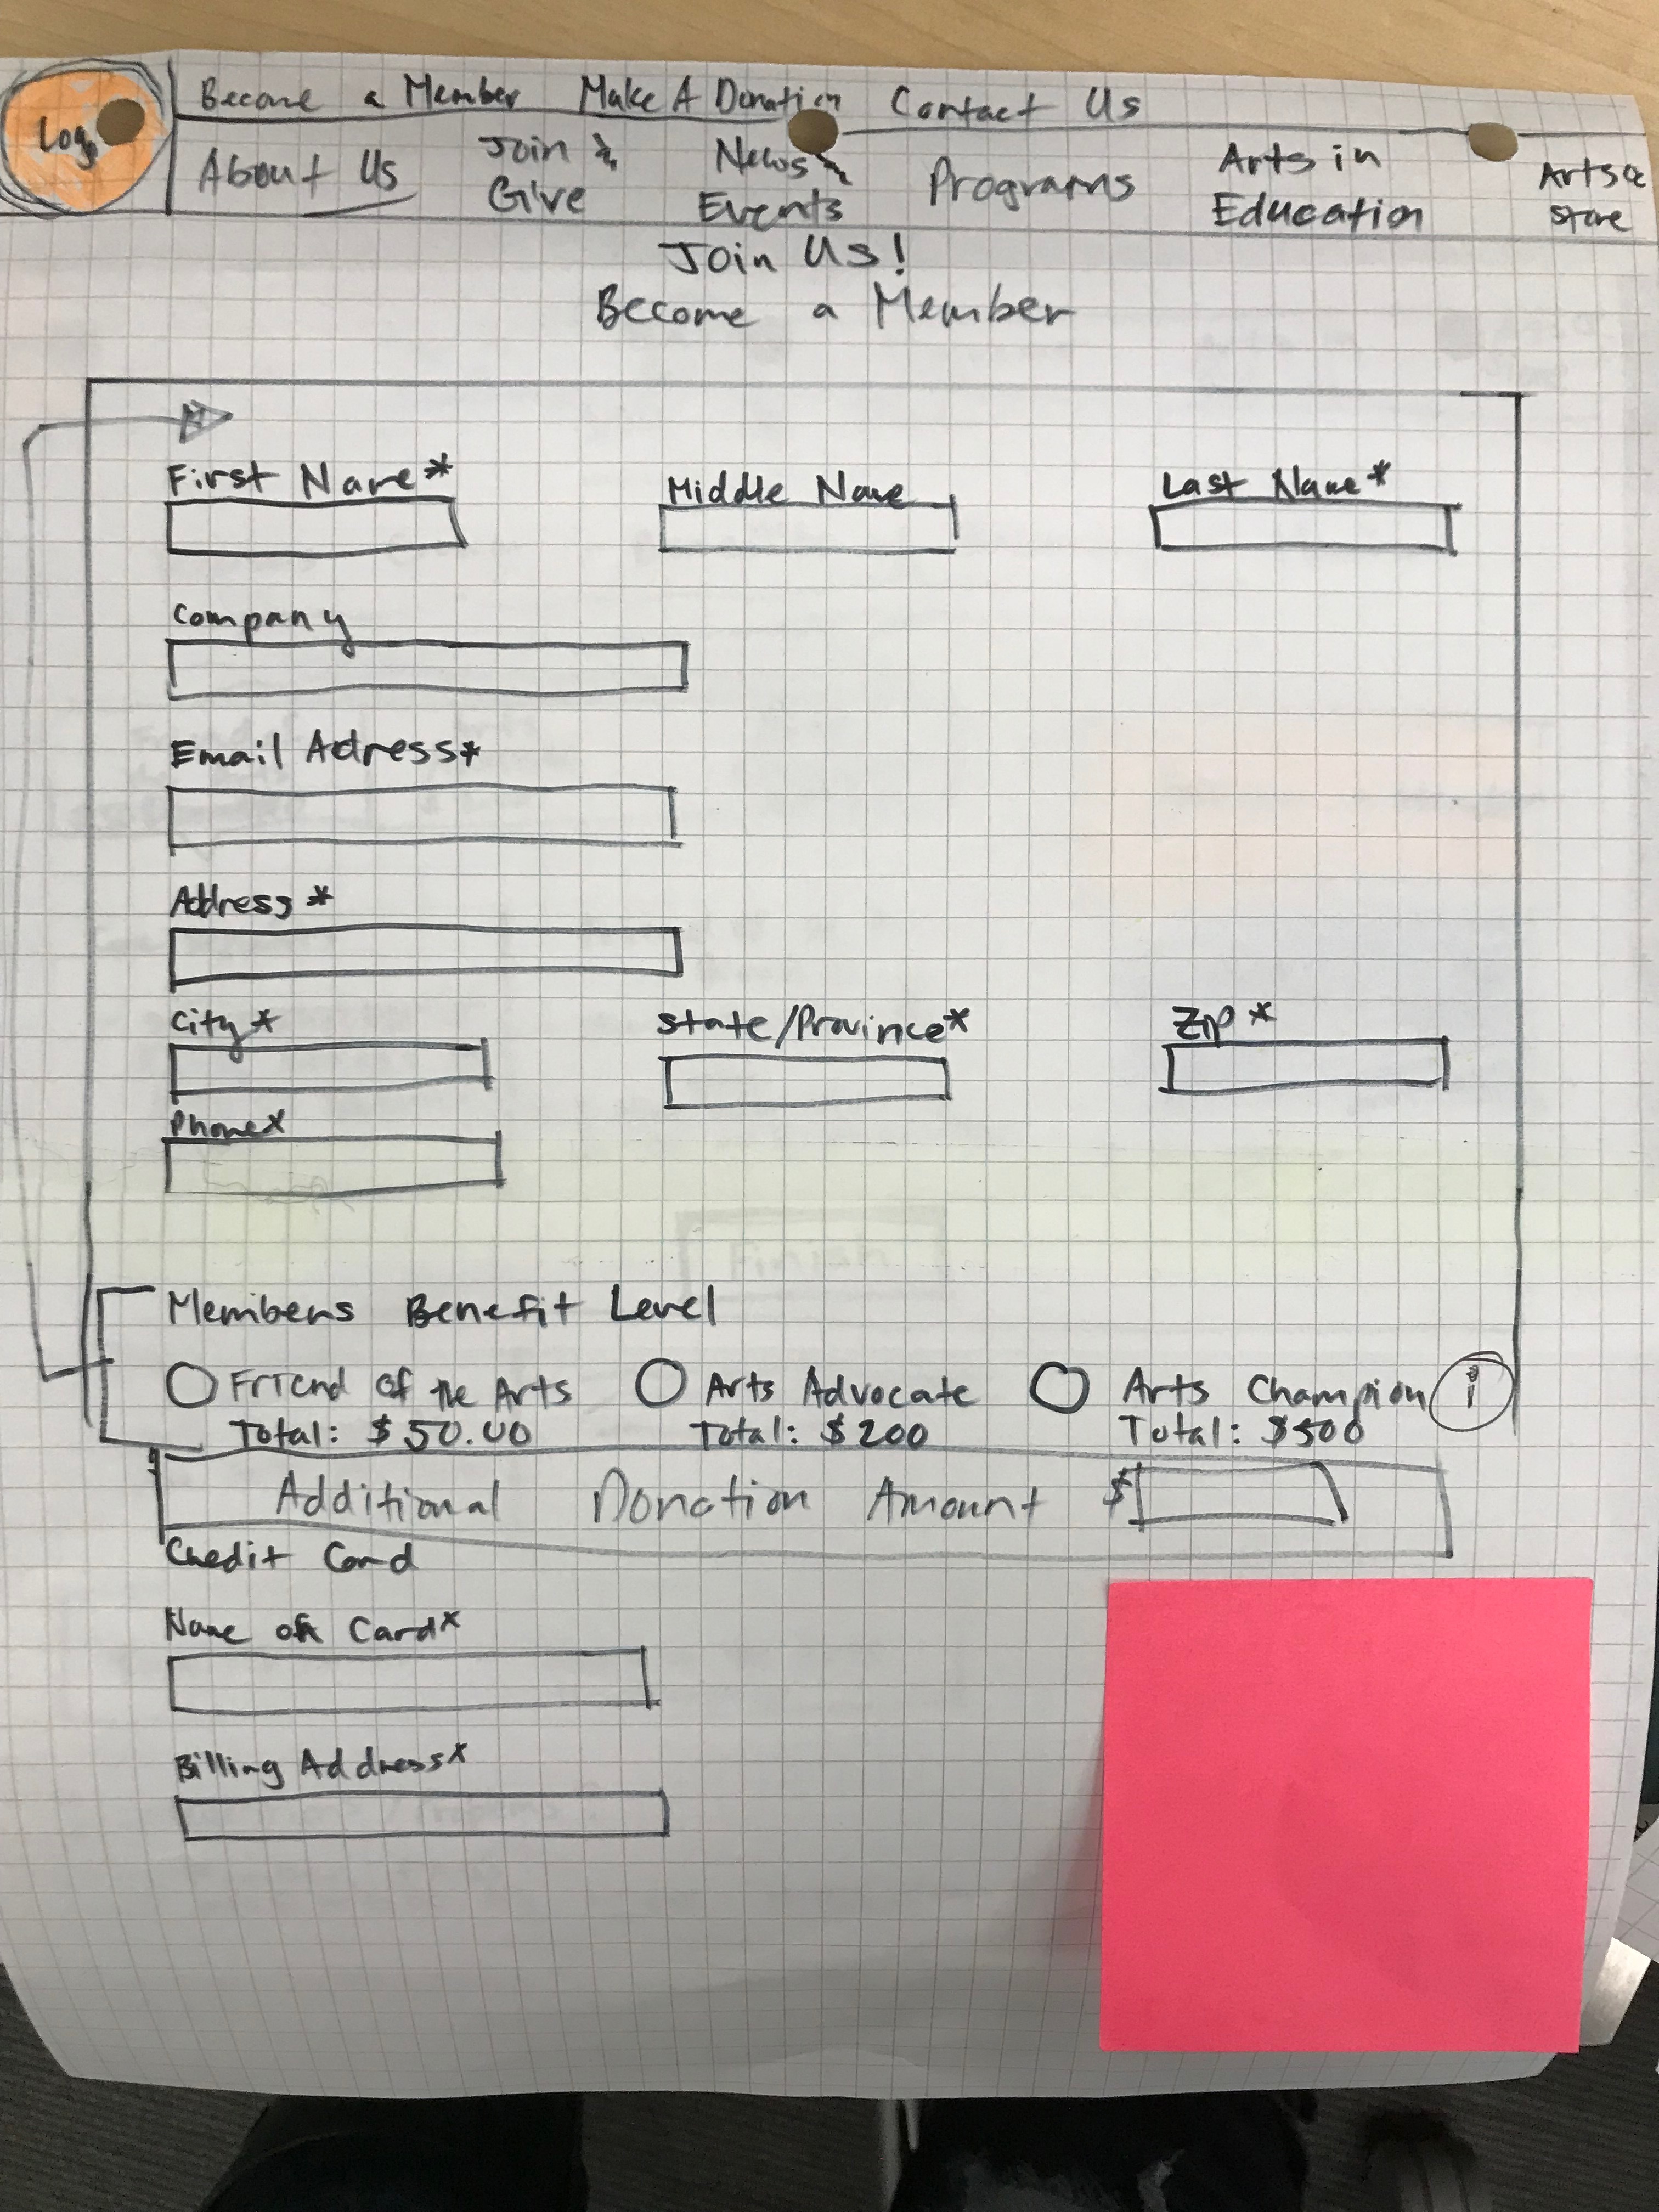 Logo
Become a Member Make A Donation Contact Us
About Us Join & Give News & Events Programs Arts in Education Artsa Store
Join Us!
Become a Member
First Name* Middle Name Last Name*
Company
Email Adress*
Address*
City* State/Province* Zip*
Phone*
Members Benefit Level
Friend of the Arts Arts Advocate Arts Champion i
Total: $50.00 Total: $200 Total: $500
Additional Donation Amount $
Credit Card
Name on Card*
Billing Address*